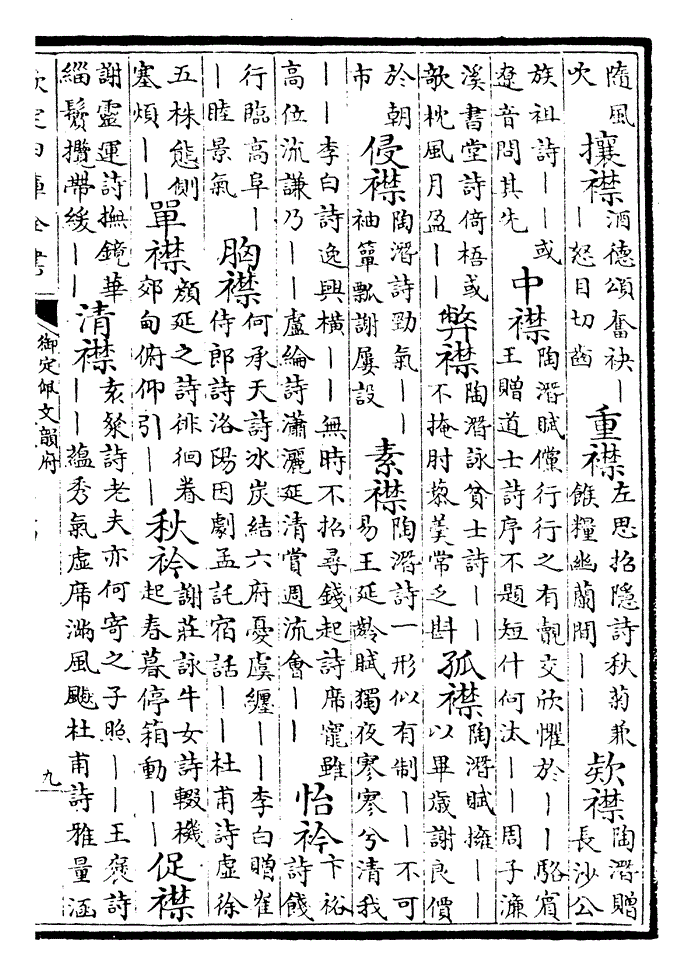 隨風吹 攘襟 酒德頌奮袂丨丨怒目切齒 重襟 左思招隱詩秋菊兼餱糧幽蘭間丨丨 欵襟 陶潛贈長沙公
族祖詩丨丨或遼音問其先 中襟 陶潛賦儻行行之有覿交欣懼於丨丨駱賓王贈道士詩序不題短什何汰丨丨周子濂
溪書堂詩倚梧或欹枕風月盈丨丨 弊襟 陶潛詠貧士詩丨丨不掩肘藜羹常乏斟 孤襟 陶潛賦擁丨丨以畢歲謝良價
於朝市 侵襟 陶潛詩勁氣丨丨袖簞瓢謝屢設 素襟 陶潛詩一形似有制丨丨不可易王延齡賦獨夜寥寥兮清我
丨丨李白詩逸興橫丨丨無時不招尋錢起詩席寵雖高位流謙乃丨丨盧綸詩瀟灑延清賞週流會丨丨 怡衿 卞裕詩餞
行臨高阜丨丨睦景氣 胸襟 何承天詩冰炭結六府憂虞纏丨丨李白贈崔侍郎詩洛陽因劇孟託宿話丨丨杜甫詩虛徐
五株態側塞煩丨丨 單襟 顏延之詩徘徊眷郊甸俯仰引丨丨 秋衿 謝莊詠牛女詩輟機起春暮停箱動丨丨 促襟
謝靈運詩撫鏡華緇鬢攬帶緩丨丨 清襟 袁粲詩老夫亦何寄之子照丨丨王褒詩丨丨蘊秀氣虛席滿風飈杜甫詩雅量涵
欽定四庫全書
御定佩文韻府
九